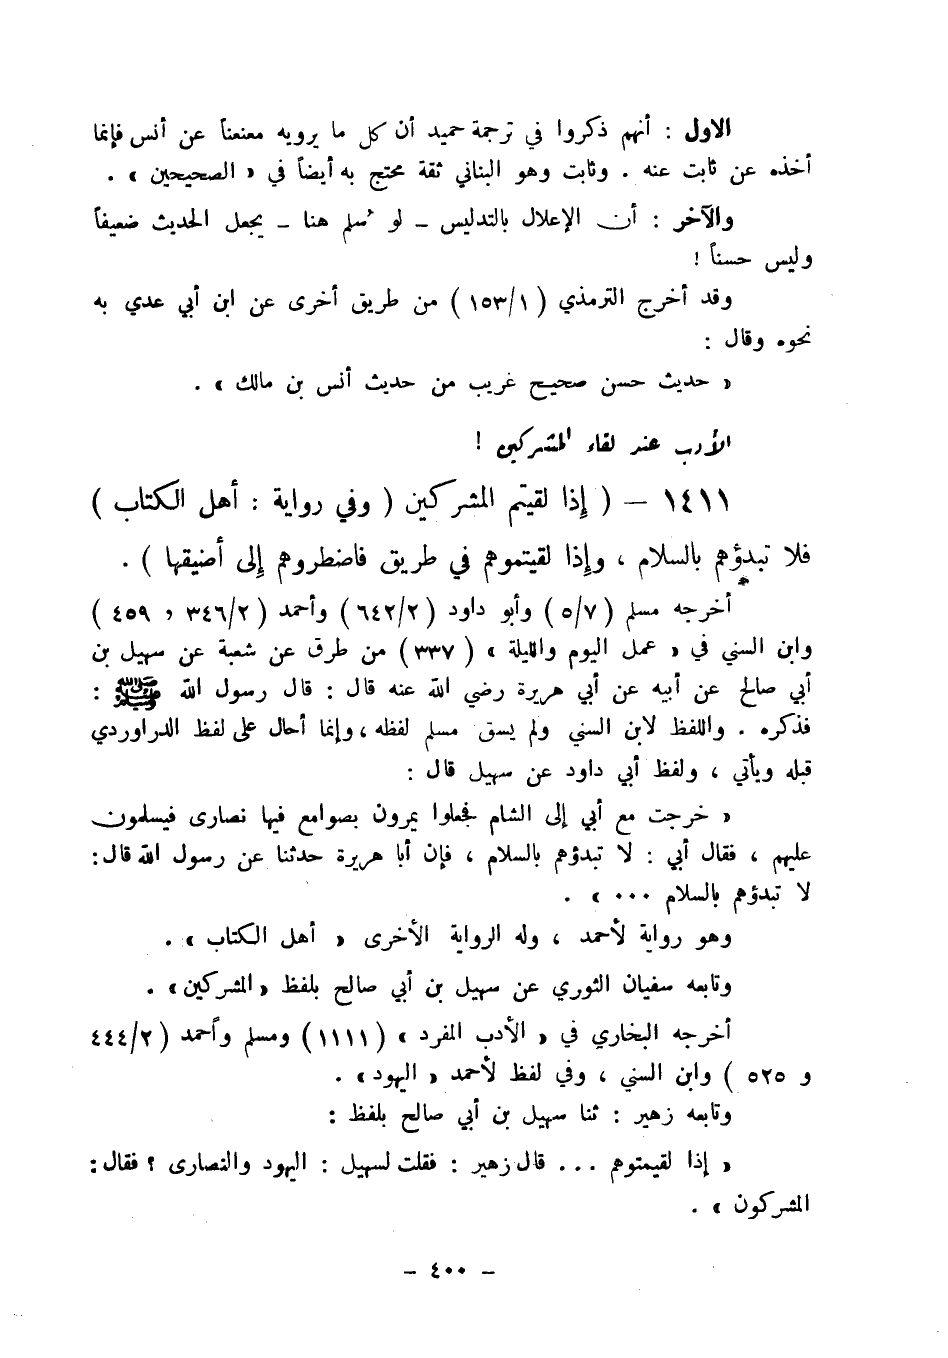 الاول : أنهم ذكروا في ترجمة حميد أن كل ما يرويه معنعناً عن أنس فإنما
أخذه عن ثابت عنه . وثابت وهو البناني ثقة محتج به أيضاً في « الصحيحين » .
والآخر : أن الإعلال بالتدليس – لو سُلم هنا – يجعل الحديث ضعيفاً
وليس حسناً !
وقد أخرج الترمذي ( ١٥٣/١ ) من طريق أخرى عن ابن أبي عدي به
نحوه وقال :
« حديث حسن صحيح غريب من حديث أنس بن مالك » .
الأدب عند لقاء المشركين !
١٤١١ – ( إذا لقيتم المشركين ( وفي رواية : أهل الكتاب )
فلا تبدؤهم بالسلام ، وإذا لقيتموهم في طريق فاضطروهم إلى أضيقها ) .
أخرجه مسلم ( ٥/٧ ) وأبو داود ( ٦٤٢/٢ ) وأحمد ( ٣٤٦/٢ و ٤٥٩ )
وابن السني في « عمل اليوم والليلة » ( ٣٣٧ ) من طرق عن شعبة عن سهيل بن
أبي صالح عن أبيه عن أبي هريرة رضي الله عنه قال : قال رسول الله ﷺ :
فذكره . واللفظ لابن السني ولم يسق مسلم لفظه ، وإنما أحال على لفظ الدراوردي
قبله ويأتي ، ولفظ أبي داود عن سهيل قال :
« خرجت مع أبي إلى الشام فجعلوا يمرون بصوامع فيها نصارى فيسلمون
عليهم ، فقال أبي : لا تبدؤهم بالسلام ، فإن أبا هريرة حدثنا عن رسول الله قال:
لا تبدؤهم بالسلام ... » .
وهو رواية لأحمد ، وله الرواية الأخرى « أهل الكتاب » .
وتابعه سفيان الثوري عن سهيل بن أبي صالح بلفظ « المشركين » .
أخرجه البخاري في « الأدب المفرد » ( ١١١١ ) ومسلم وأحمد ( ٤٤٤/٢
و ٥٢٥ ) وابن السني ، وفي لفظ لأحمد « اليهود » .
وتابعه زهير : ثنا سهيل بن أبي صالح بلفظ :
« إذا لقيمتوهم ... قال زهير : فقلت لسهيل : اليهود والنصارى ؟ فقال :
المشركون » .
– ٤٠٠ –